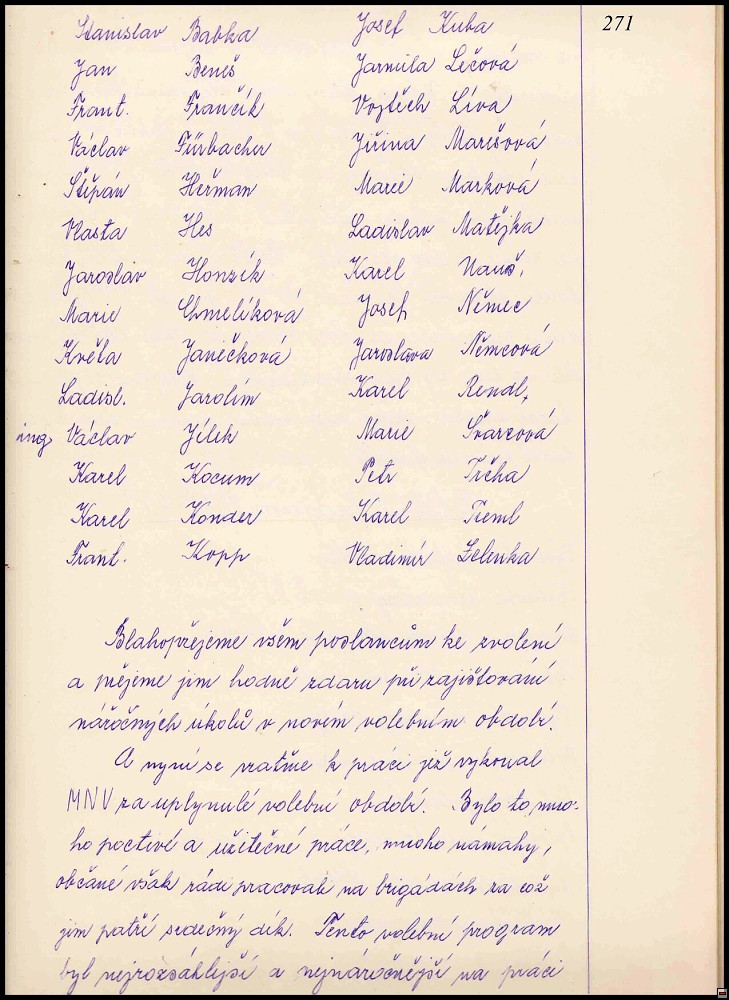 271
Stanislav Babka Josef Kuba
Jan Beneš Jarmila Lečová
Frant. Frančík Vojtěch Líva
Václav Fürbacher Jiřina Marešová
Štěpán Heřman Marie Marková
Vlasta Hes Ladislav Matějka
Jaroslav Honzík Karel
Marie Chmelíková Josef Němec
Květa Janečková Jaroslava Němcová
Ladisl. Jarolím Karel Rendl,
ing Václav Jílek Marie Švarcová
Karel Kocum Petr Trčka
Karel Konder Karel Tieml
Frant. Kopp Vladimír Zelenka
Blahopřejeme všem poslancům ke zvolení
a přejeme jim hodně zdaru při zajišťování
náročných úkolů v novém volebním období.
A nyní se vraťme k práci již vykonal
MNV za uplynulé volební období. Bylo to mno-
ho poctivé a užitečné práce, mnoho námahy,
občané však rádi pracovali na brigádách za což
jim patří srdečný dík. Tento volební program
byl nejrozsáhlejší a nejnáročnější na práci